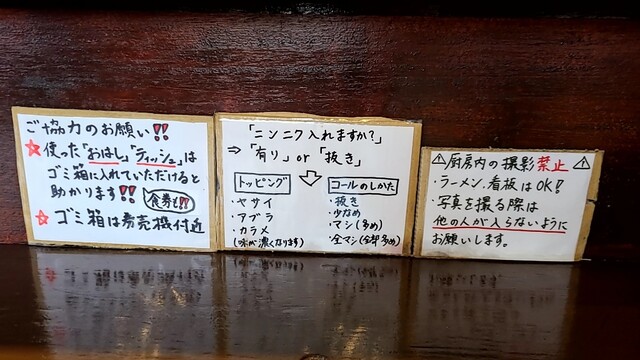 ご協力のお願い‼
☆使った「おはし」「ティッシュ」は
ゴミ箱に入れていただけると
助かります‼
食券も‼
☆ゴミ箱は券売機付近
「ニンニク入れますか？」
⇒「有り」or「抜き」
トッピング
・ヤサイ
・アブラ
・カラメ
(味が濃くなります)
コールのしかた
・抜き
・少なめ
・マシ(多め)
・全マシ(全部多め)
⚠厨房内の撮影禁止⚠
・ラーメン、看板はOK!!
・写真を撮る際は
他の人が入らないように
お願いします。